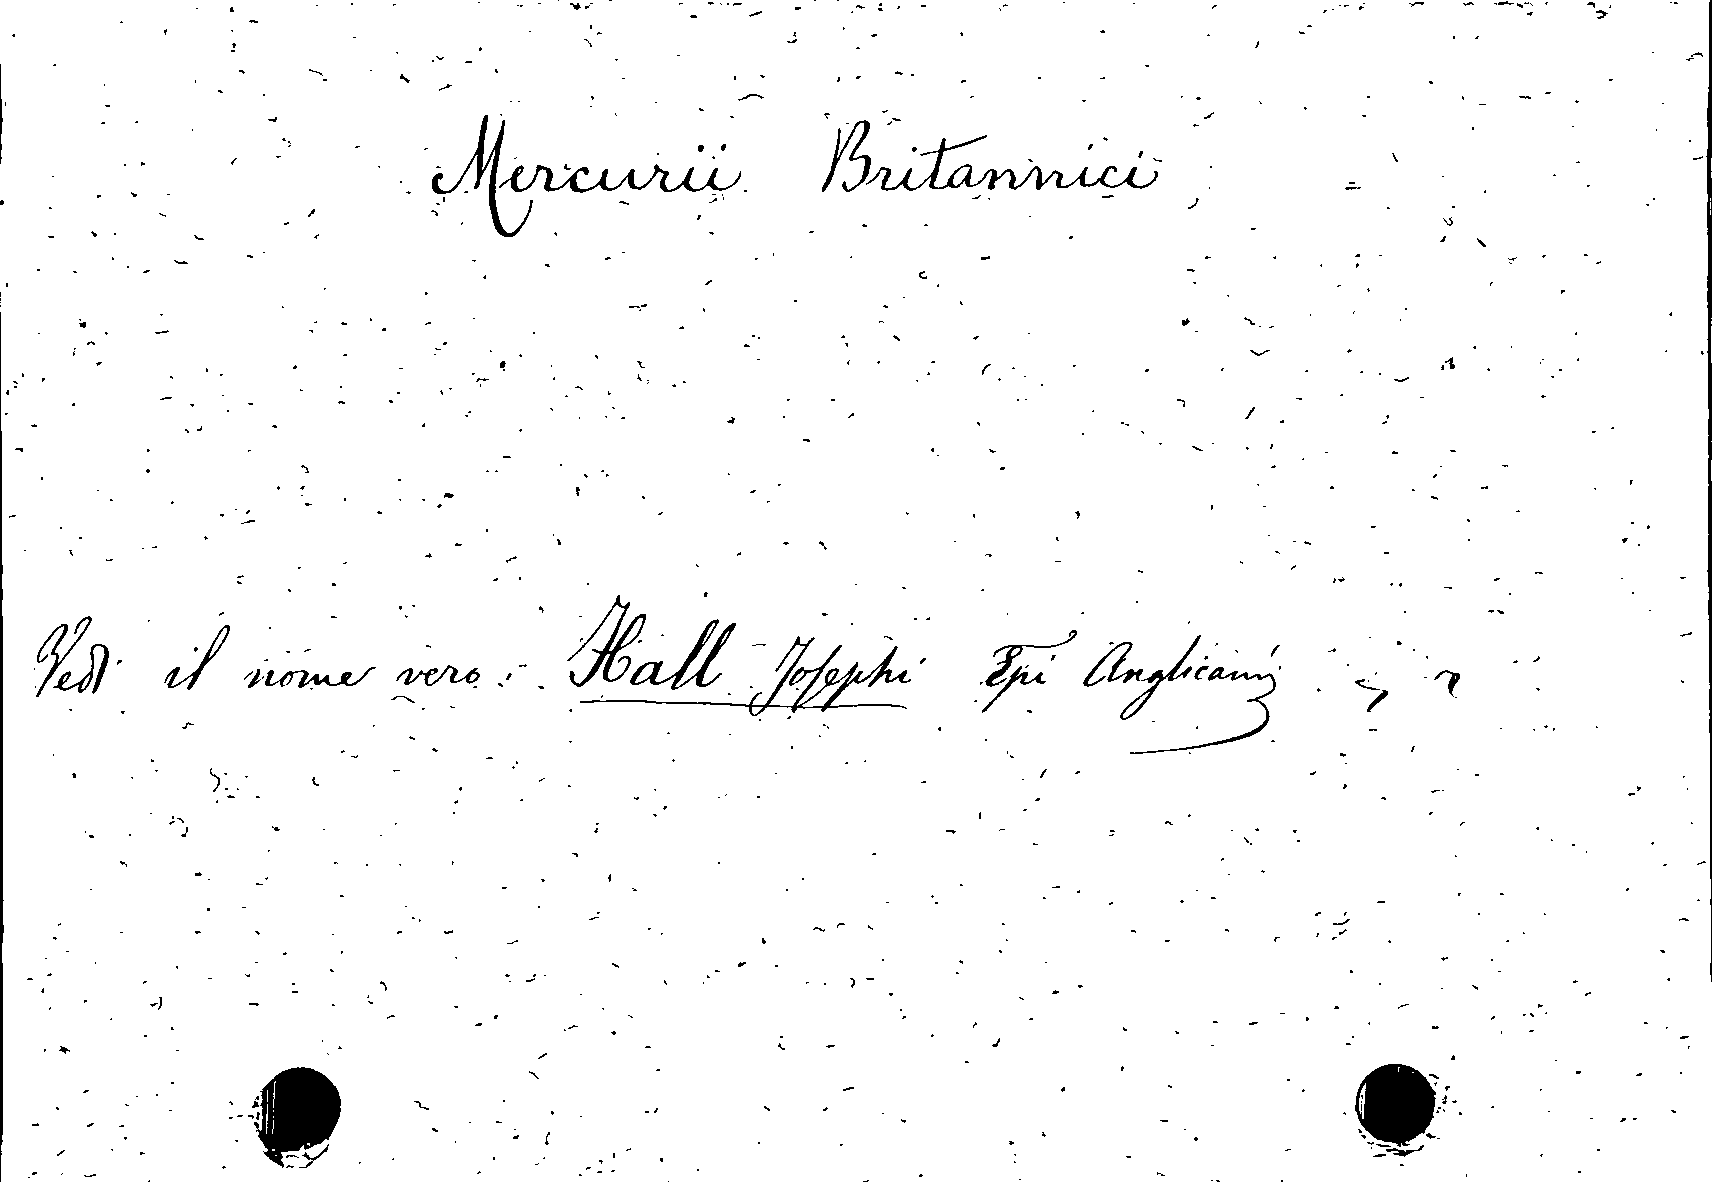 Mercurii Britannici
Vedi il nome vero: Hall Josephi Epi Anglicani